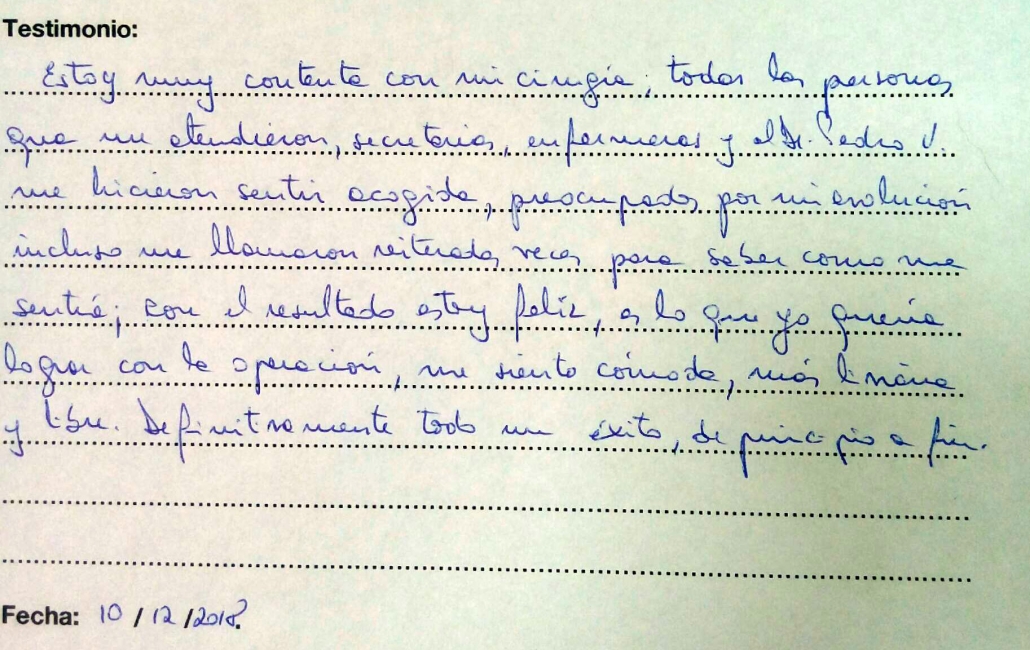 Testimonio:
Estoy muy contenta con mi cirugía; todas las personas
que me atendieron, secretarias, enfermeras y el Dr. Pedro V.
me hicieron sentir acogida, preocupados por mi evolución
incluso me llamaron reiteradas veces para saber como me
sentía; con el resultado estoy feliz, es lo que yo quería
lograr con la operación, me siento cómoda, más liviana
y libre. Definitivamente todo un éxito, de principio a fin.
Fecha: 10 / 12 /2018.